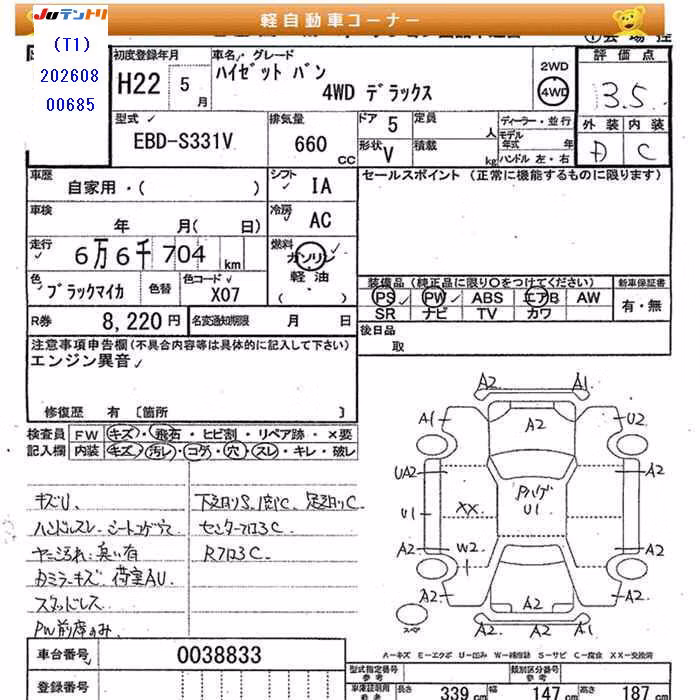 Juテントリ
軽自動車コーナー
(T1)
202608
00685
初度登録年月
H22 5 月
車名・グレード
ハイゼット バン
4WD デラックス
2WD
4WD
評価点
3.5
外装 内装
D C
型式
EBD-S331V
排気量
660 cc
ドア 5
形状 V
定員 人
積載 kg
ディーラー・並行
モデル年式 年
ハンドル 左・右
車歴
自家用・( )
シフト IA
車検
年 月( 日)
冷房 AC
走行
6万6千704 km
燃料
ガソリン
軽油
( ・ )
色
ブラックマイカ
色替
色コード
X07
R券 8,220円
名変通知期限 月 日
セールスポイント (正常に機能するものに限ります)
装備品 (純正品に限り○をつけてください)
PS PW ABS エアB AW
SR ナビ TV カワ
新車保証書
有・無
後日品
取
注意事項申告欄(不具合内容等は具体的に記入して下さい)
エンジン異音
修復歴 有 〔箇所 〕
検査員記入欄
FW キズ・飛石・ヒビ割・リペア跡・×要
内装 キズ・汚レ・コゲ・穴・スレ・キレ・破レ
キズU、
ハンドルスレ シートコゲ穴
ヤニ汚れ・臭い有
カミラーキズ 荷室AU.
スタッドレス
PW前席のみ.
下廻りS、腐C、足廻りC
センターフロアC
RフロアC
A2 A1
A1 A2 U2
UA2 A2
U1 XX PハゲU1
A2 W2 A2
A2 A2 A2
A2 A2 A2
スペア
A-キズ E-エクボ U-凹み W-補修跡 S-サビ C-腐食 XX-交換済
車台番号 0038833
登録番号
型式指定番号 参考
類別区分番号 参考
車庫証明用参考
長さ 339cm 幅 147cm 高さ 187cm